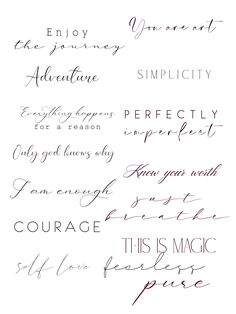 Enjoy
the journey
You are art
Adventure
SIMPLICITY
Everything happens
for a reason
PERFECTLY
imperfect
Only god knows why
Know your worth
I am enough
just
breathe
COURAGE
THIS IS MAGIC
self love
fearless
pure